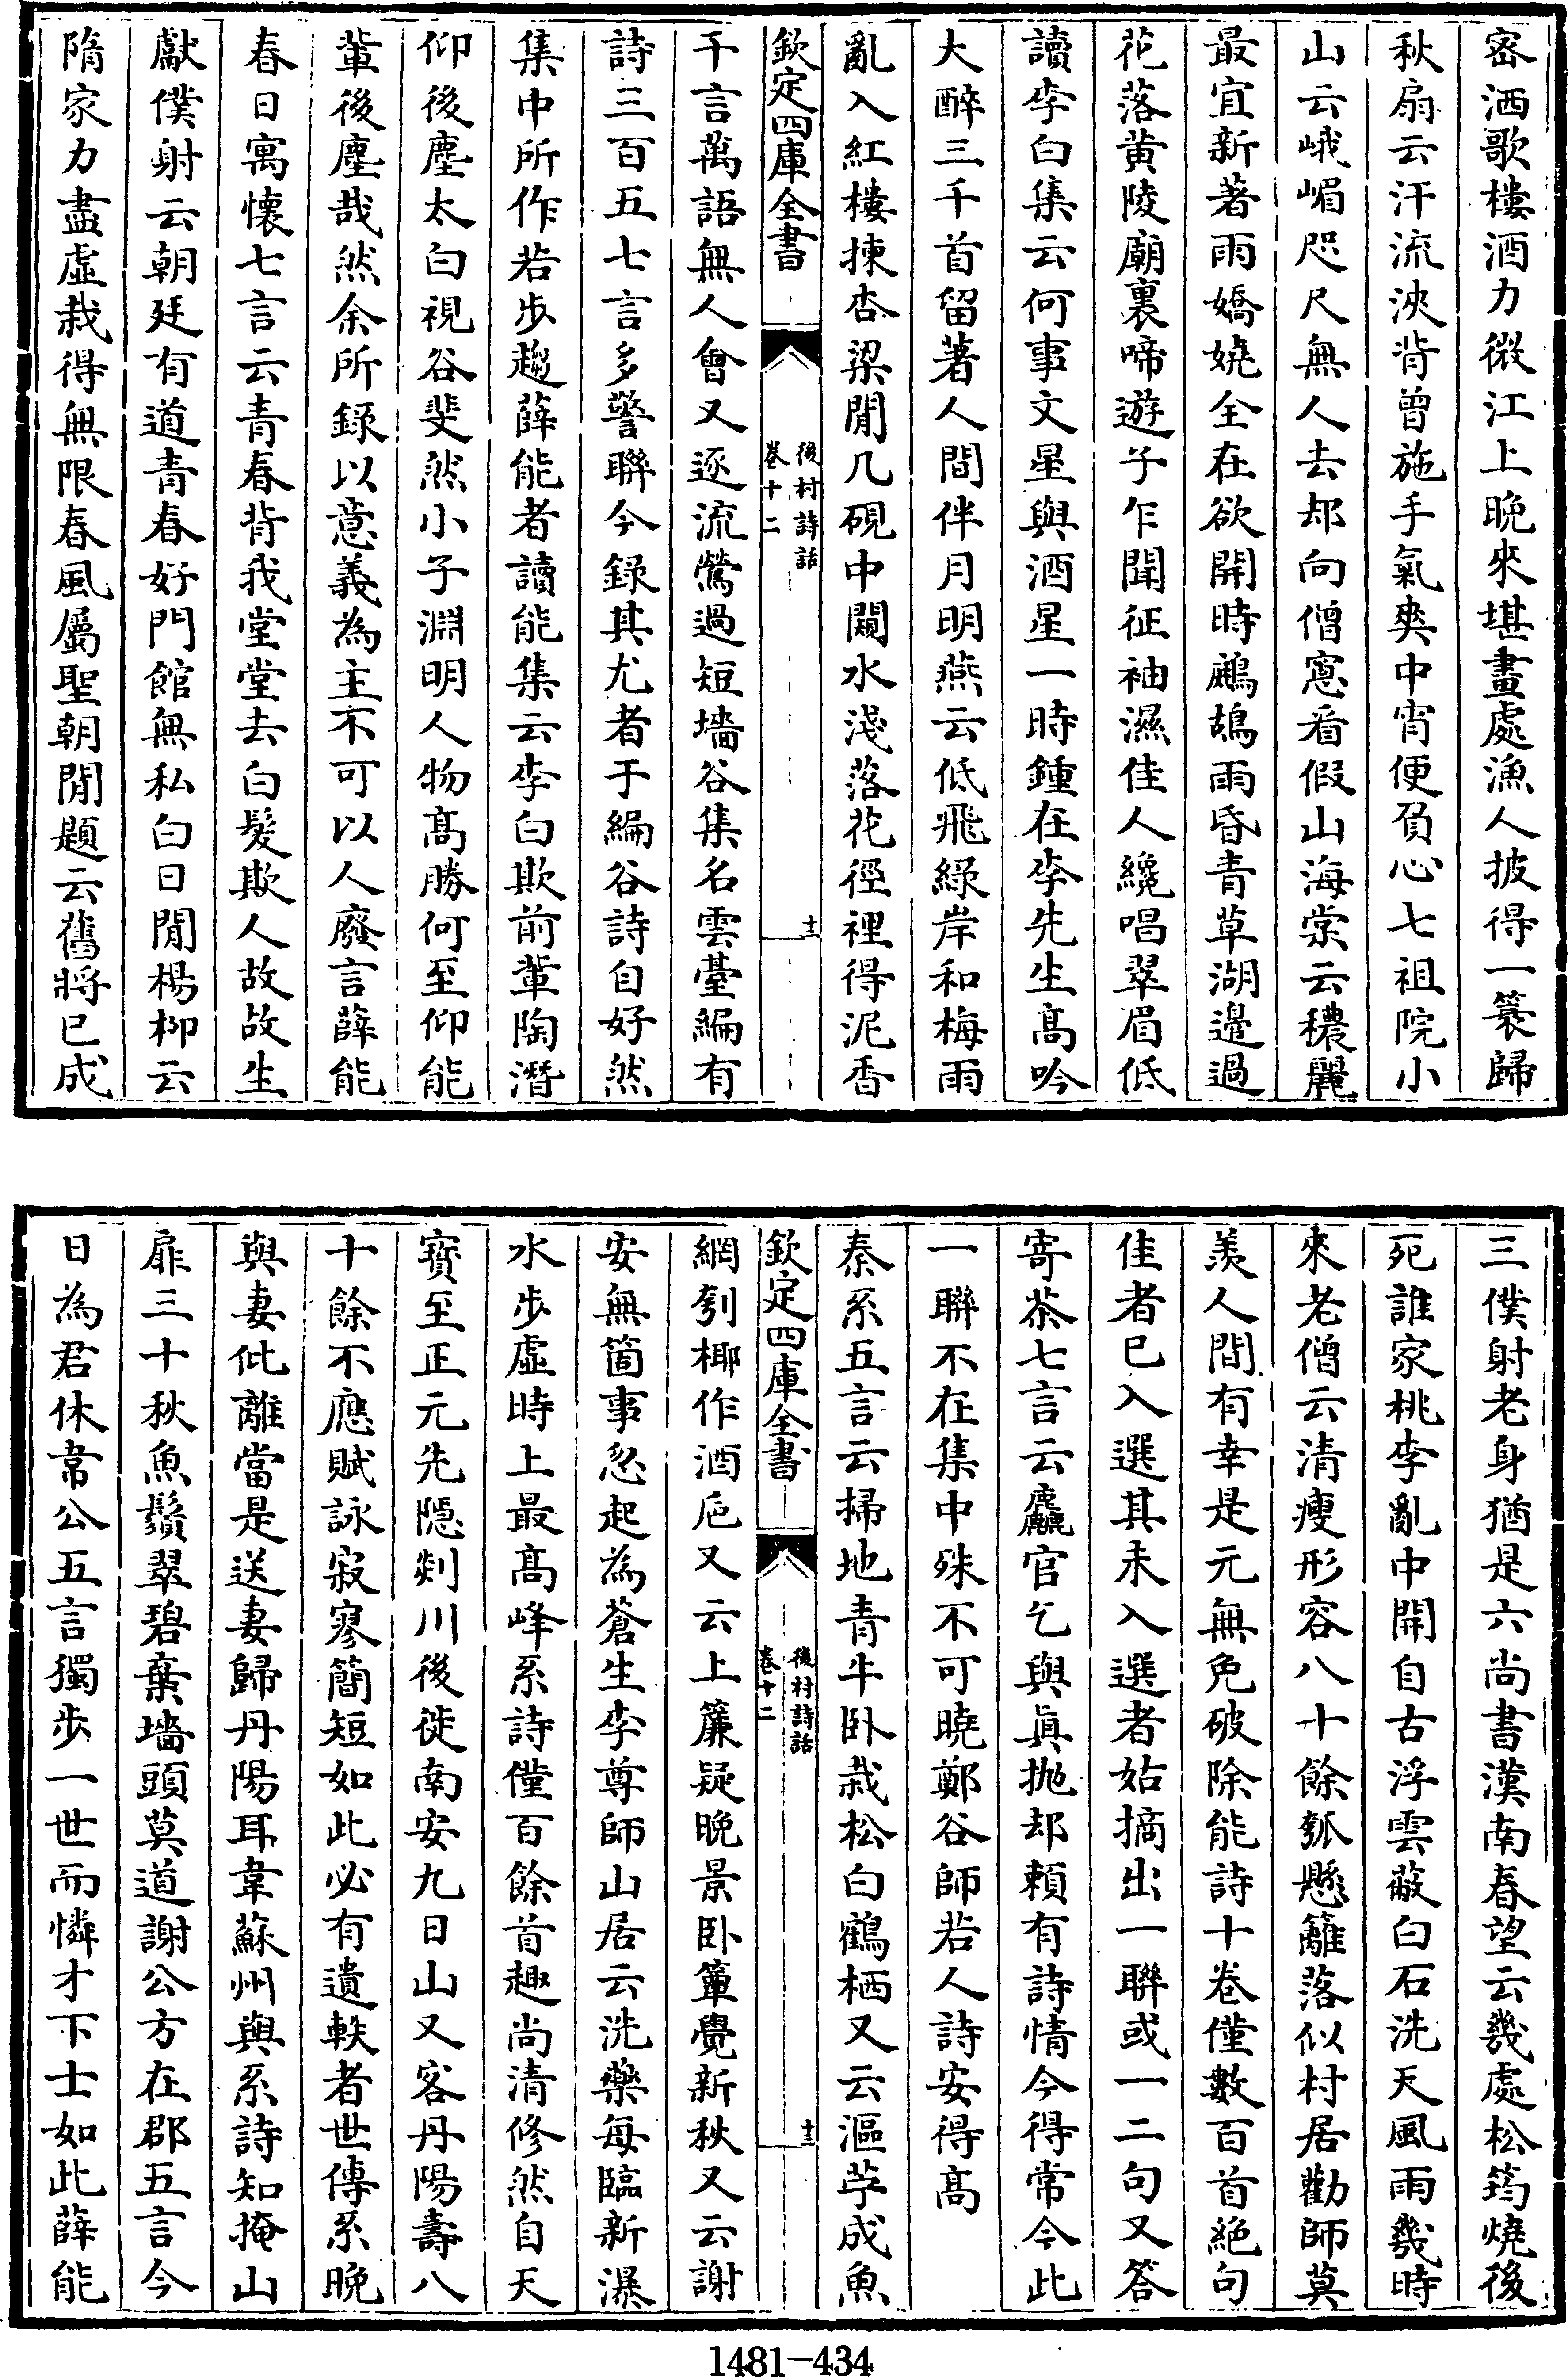 密洒歌樓酒力微江上晚來堪畫處漁人披得一簑歸
秋扇云汗流浹背曾施手氣爽中宵便負心七祖院小
山云峨嵋咫尺無人去却向僧窻看假山海棠云穠麗
最宜新著雨嬌嬈全在欲開時鷓鴣雨昏青草湖邉過
花落黄陵廟裏啼遊子乍聞征袖濕佳人纔唱翠眉低
讀李白集云何事文星與酒星一時鍾在李先生髙吟
大醉三千首留著人間伴月明燕云低飛綠岸和梅雨
亂入紅樓揀杏梁閒几硯中闚水淺落花徑裡得泥香
欽定四庫全書
後村詩話
卷十二
十二
千言萬語無人會又逐流鶯過短墻谷集名雲臺編有
詩三百五七言多警聯今錄其尤者于編谷詩自好然
集中所作若步趨薛能者讀能集云李白欺前軰陶潛
仰後塵太白視谷斐然小子淵明人物髙勝何至仰能
軰後塵哉然余所録以意義為主不可以人廢言薛能
春日寓懷七言云青春背我堂堂去白髮欺人故故生
獻僕射云朝廷有道青春好門館無私白日閒楊柳云
隋家力盡虛栽得無限春風屬聖朝閒題云舊將已成
三僕射老身猶是六尚書漢南春望云幾處松筠燒後
死誰家桃李亂中開自古浮雲蔽白石洗天風雨幾時
來老僧云清瘦形容八十餘瓠懸籬落似村居勸師莫
羨人間有幸是元無免破除能詩十卷僅數百首絶句
佳者已入選其未入選者姑摘出一聯或一二句又答
寄茶七言云麤官乞與真抛却頼有詩情今得常今此
一聯不在集中殊不可曉鄭谷師若人詩安得髙
秦系五言云掃地青牛卧栽松白鶴栖又云漚苧成魚
欽定四庫全書
後村詩話
卷十二
十三
網刳椰作酒巵又云上簾疑晚景卧簟覺新秋又云謝
安無箇事忽起為蒼生李尊師山居云洗藥每臨新瀑
水步虛時上最髙峰系詩僅百餘首趣尚清修然自天
寳至正元先隠剡川後徙南安九日山又客丹陽壽八
十餘不應賦詠寂寥簡短如此必有遺軼者世傳系晚
與妻仳離當是送妻歸丹陽耳韋蘇州與系詩知掩山
扉三十秋魚鬚翠碧棄墻頭莫道謝公方在郡五言今
日為君休常公五言獨步一世而憐才下士如此薛能
1481-434